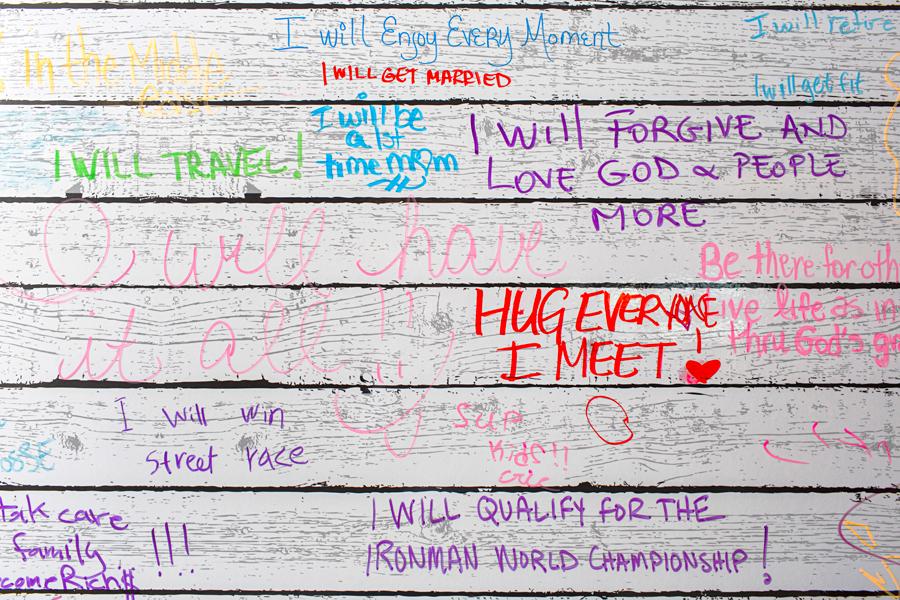 I will Enjoy Every Moment
I will retire
In the Middle
East
I WILL GET MARRIED
I will get fit
I will be
a 1st
time mom
I WILL TRAVEL!
I WIll FORGIVE AND
LOVE GOD & PEOPLE
MORE
I will have
it all!!
Be there for oth
ive life as in
thru God's gr
HUG EVERYONE
I MEET!
I will win
street race
Sup
Kids!!
eric
tak care
family
comeRich$
!!!
I WILL QUALIFY FOR THE
IRONMAN WORLD CHAMPIONSHIP!